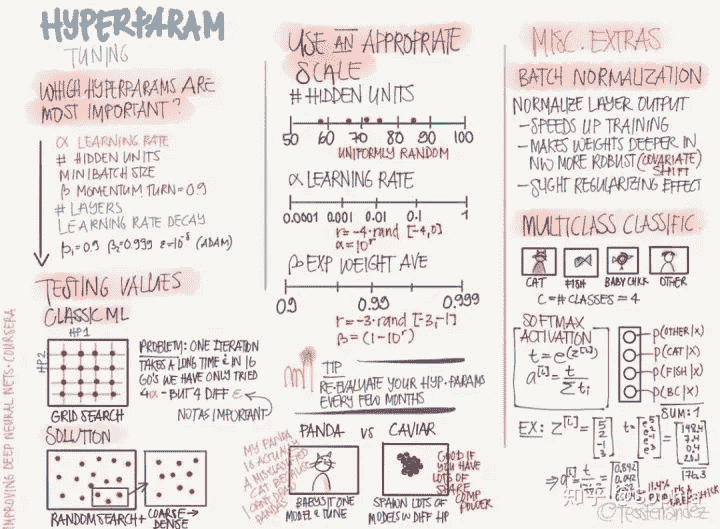 HYPERPARAM
TUNING
WHICH HYPERPARAMS ARE
MOST IMPORTANT?
α LEARNING RATE
# HIDDEN UNITS
MINIBATCH SIZE
β MOMENTUM TURN = 0.9
# LAYERS
LEARNING RATE DECAY
β₁=0.9 β₂=0.999 ε=10⁻⁸ (ADAM)
TESTING VALUES
CLASSIC ML
HP1
HP2
GRID SEARCH
PROBLEM: ONE ITERATION
TAKES A LONG TIME & IN 16
GO'S WE HAVE ONLY TRIED
4α - BUT 4 DIFF ε
NOT AS IMPORTANT
SOLUTION
RANDOM SEARCH + COARSE → DENSE
IMPROVING DEEP NEURAL NETS · COURSERA
USE AN APPROPRIATE
SCALE
# HIDDEN UNITS
50 60 70 80 90 100
UNIFORMLY RANDOM
α LEARNING RATE
0.0001 0.001 0.01 0.1 1
r = -4·rand [-4,0]
α = 10ʳ
β EXP WEIGHT AVE
0.9 0.99 0.999
r = -3·rand [-3,-1]
β = (1-10ʳ)
TIP
RE-EVALUATE YOUR HYP. PARAMS
EVERY FEW MONTHS
PANDA VS CAVIAR
MY PANDA
IS ACTUALLY
A MISCLASSIFIED
CAT BECAUSE
I CAN'T DRAW
PANDAS
BABYSIT ONE
MODEL & TUNE
SPAWN LOTS OF
MODELS W DIFF HP
GOOD IF
YOU HAVE
LOTS OF
COMP
POWER
MISC. EXTRAS
BATCH NORMALIZATION
NORMALIZE LAYER OUTPUT
- SPEEDS UP TRAINING
- MAKES WEIGHTS DEEPER IN
NW MORE ROBUST (COVARIATE
SHIFT)
- SLIGHT REGULARIZING EFFECT
MULTICLASS CLASSIFIC.
CAT FISH BABY CHICK OTHER
C = # CLASSES = 4
SOFTMAX
ACTIVATION
t = e^(z^[L])
a^[L] = t / Σtᵢ
P(OTHER|X)
P(CAT|X)
P(FISH|X)
P(BC|X)
SUM: 1
EX: Z^[L] = [5 2 -1 3] t = [e⁵ e² e⁻¹ e³] = [148.4 7.4 0.4 20.1]
176.3
⇒ a^[L] = t / = [0.842 0.042 0.002 0.114]
11.4%
@TessFerrandez